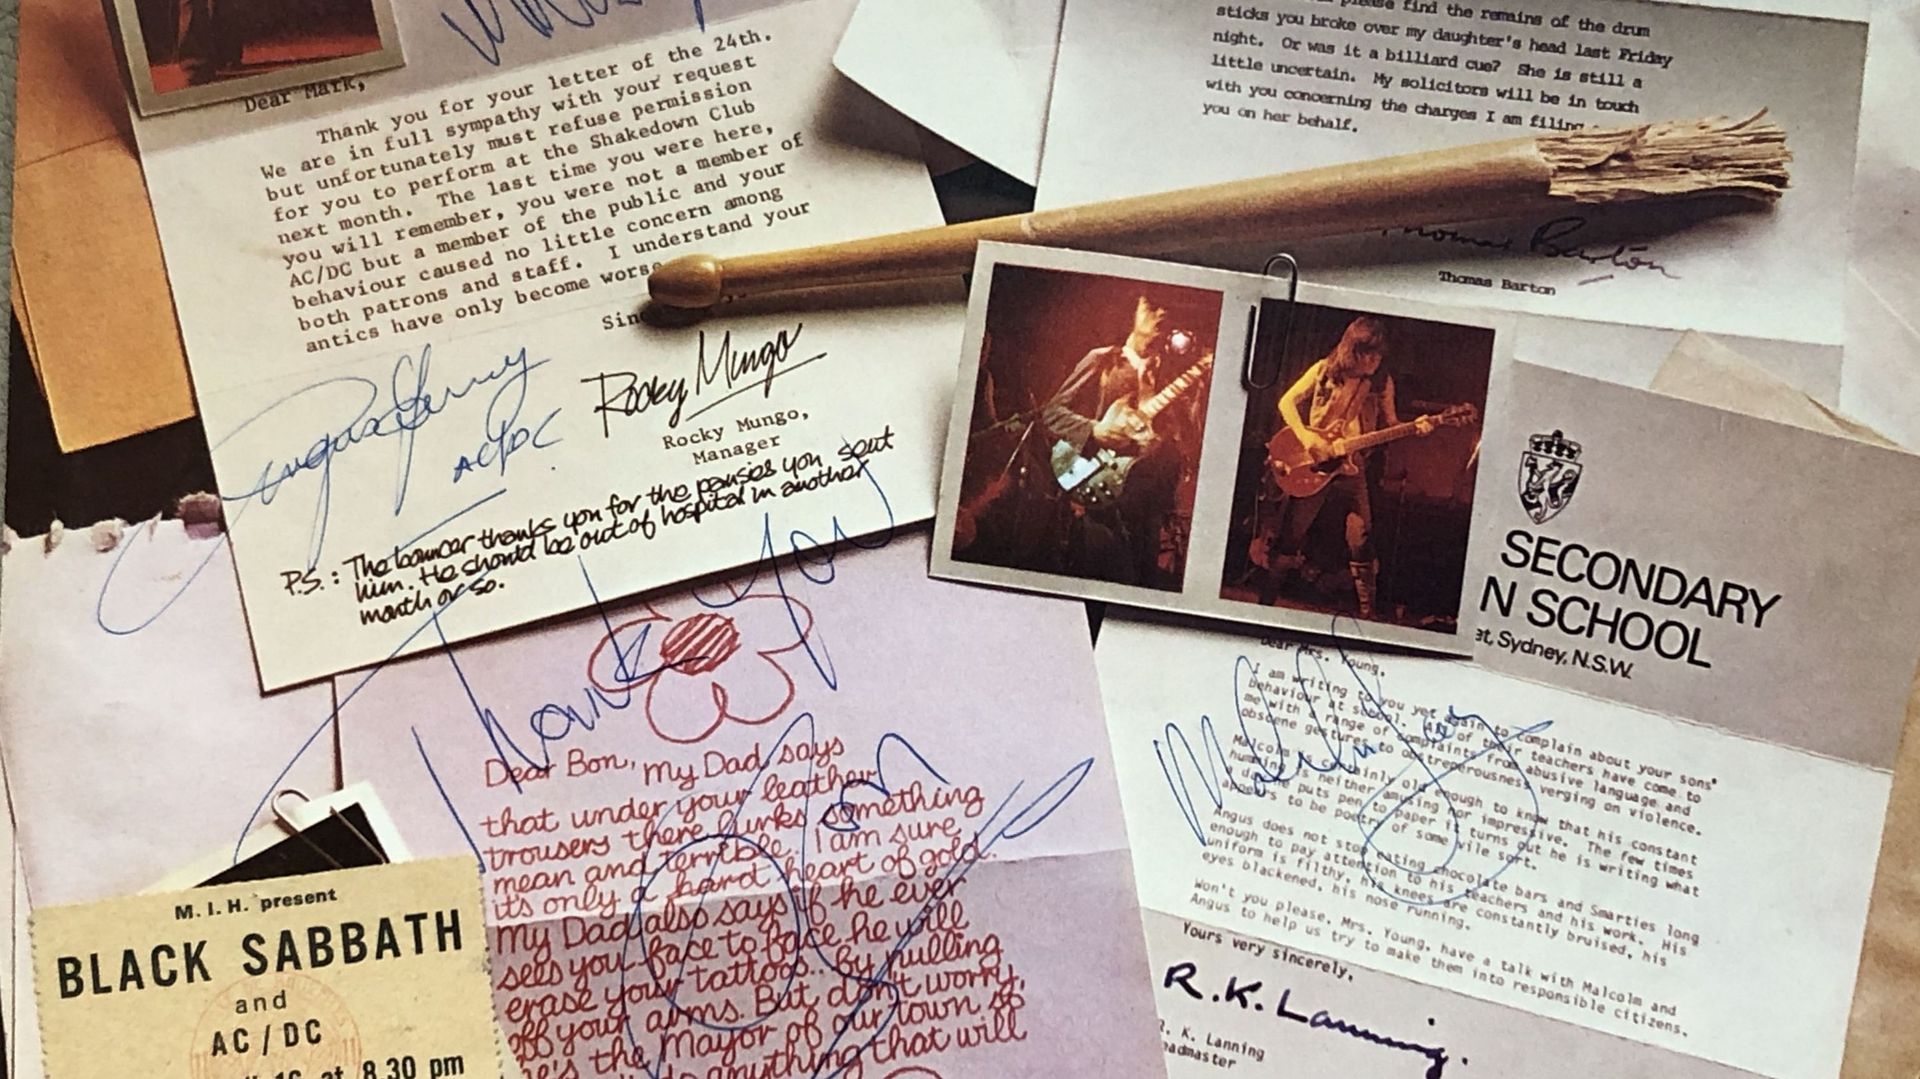 Dear Mark,
Thank you for your letter of the 24th.
We are in full sympathy with your request
but unfortunately must refuse permission
for you to perform at the Shakedown Club
next month. The last time you were here,
you will remember, you were not a member of
AC/DC but a member of the public and your
behaviour caused no little concern among
both patrons and staff. I understand your
antics have only become worse
Sin
Rocky Mungo
Rocky Mungo,
Manager
P.S.: The bouncer thanks you for the pansies you sent
him. He should be out of hospital in another
month or so.
Angus Young
AC/DC
Thank You
please find the remains of the drum
sticks you broke over my daughter's head last Friday
night. Or was it a billiard cue? She is still a
little uncertain. My solicitors will be in touch
with you concerning the charges I am filing
you on her behalf.
Thomas Barton
Thomas Barton
SECONDARY
N SCHOOL
et, Sydney, N.S.W.
Dear Mrs. Young,
I am writing to you yet again to complain about your sons'
behaviour at school. All of their teachers have come to
me with a range of complaints from abusive language and
obscene gestures to obstreperousness verging on violence.
Malcolm is certainly old enough to know that his constant
humming is neither amusing nor impressive. The few times
a day he puts pen to paper it turns out he is writing what
appears to be poetry of some vile sort.
Angus does not stop eating chocolate bars and Smarties long
enough to pay attention to his teachers and his work. His
uniform is filthy, his knees are constantly bruised, his
eyes blackened, his nose running.
Won't you please, Mrs. Young, have a talk with Malcolm and
Angus to help us try to make them into responsible citizens.
Yours very sincerely,
R.K. Lanning.
R. K. Lanning
eadmaster
Dear Bon, My Dad says
that under your leather
trousers there lurks something
mean and terrible. I am sure
it's only a hard heart of gold.
My Dad also says if he ever
sees you face to face he will
erase your tattoos.. By pulling
off your arms. But don't worry,
he's the Mayor of our town, so
anything that will
M. I. H. present
BLACK SABBATH
and
AC / DC
16 at 8.30 pm